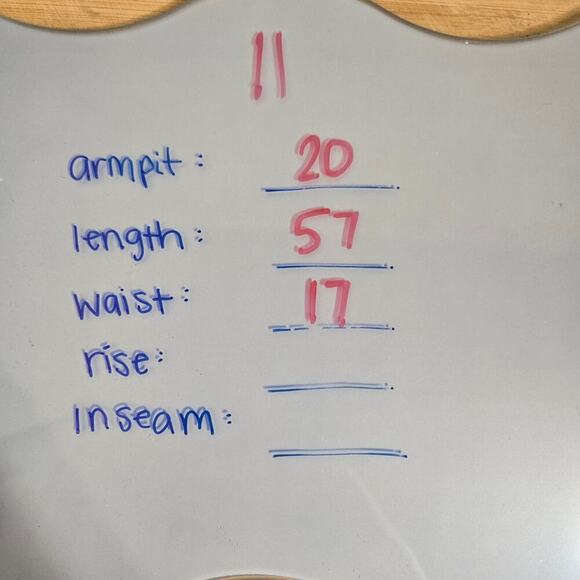 11
armpit: 20
length: 57
waist: 17
rise:
inseam: